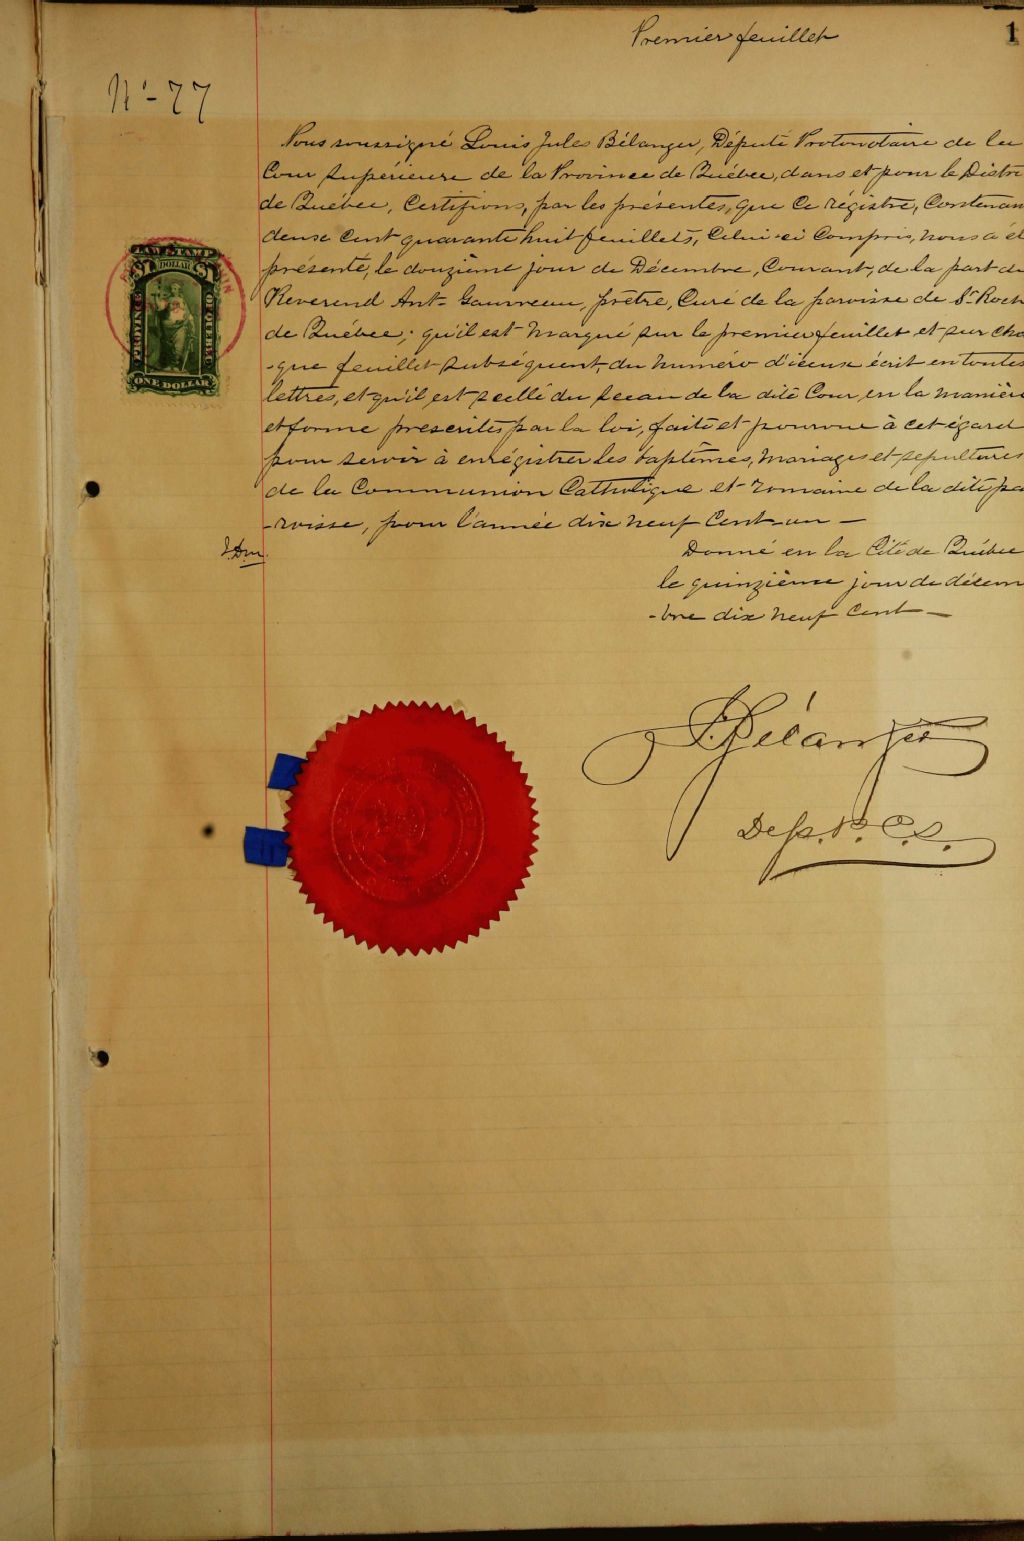 Premier feuillet
1
No - 77
Nous soussigné Louis Jules Bélanger, Député Protonotaire de la
Cour Supérieure de la Province de Québec, dans et pour le Distri
de Québec, Certifions, par les présentes, que ce régistre, Contenan
deux cent quarante huit feuillets, Celui-ci Compris, nous a ét
présenté, le douzième jour de Décembre, Courant, de la part du
Reverend Ant. Gauvreau, prêtre, Curé de la paroisse de St Roch
de Québec; qu'il est marqué sur le premier feuillet et sur cha
-que feuillet subséquent, du numéro d'iceux écrit en toutes
lettres, et qu'il est scellé du sceau de la dite Cour, en la manière
et forme prescrites par la loi, faite et pourvue à cet égard
pour servir à enrégistrer les baptêmes, mariages et sepultures
de la Communion Catholique et romaine de la dite pa
-roisse, pour l'année dix neuf Cent-un —
Donné en la Cité de Québec
le quinzième jour de décem
-bre dix neuf Cent —
LAW STAMP
$1 DOLLAR $1
PROVINCE
OF QUEBEC
ONE DOLLAR
Bélanger
Dep. P. C. S.